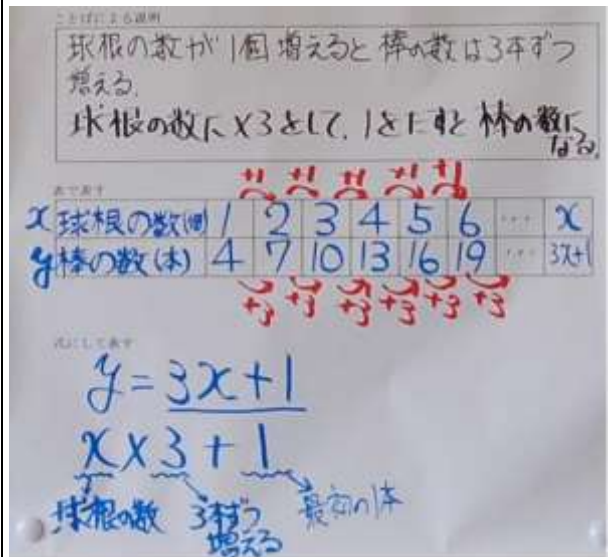 ことばによる説明
球根の数が1個増えると棒の数は3本ずつ
増える.
球根の数に×3をして、1をたすと棒の数に
なる。
+1 +1 +1 +1 +1
表で表す
x 球根の数(個) 1 2 3 4 5 6 ・・・ x
y 棒の数(本) 4 7 10 13 16 19 ・・・ 3x+1
+3 +3 +3 +3 +3 +3
式にして表す
y=3x+1
x×3+1
球根の数 3本ずつ 最初の1本
増える